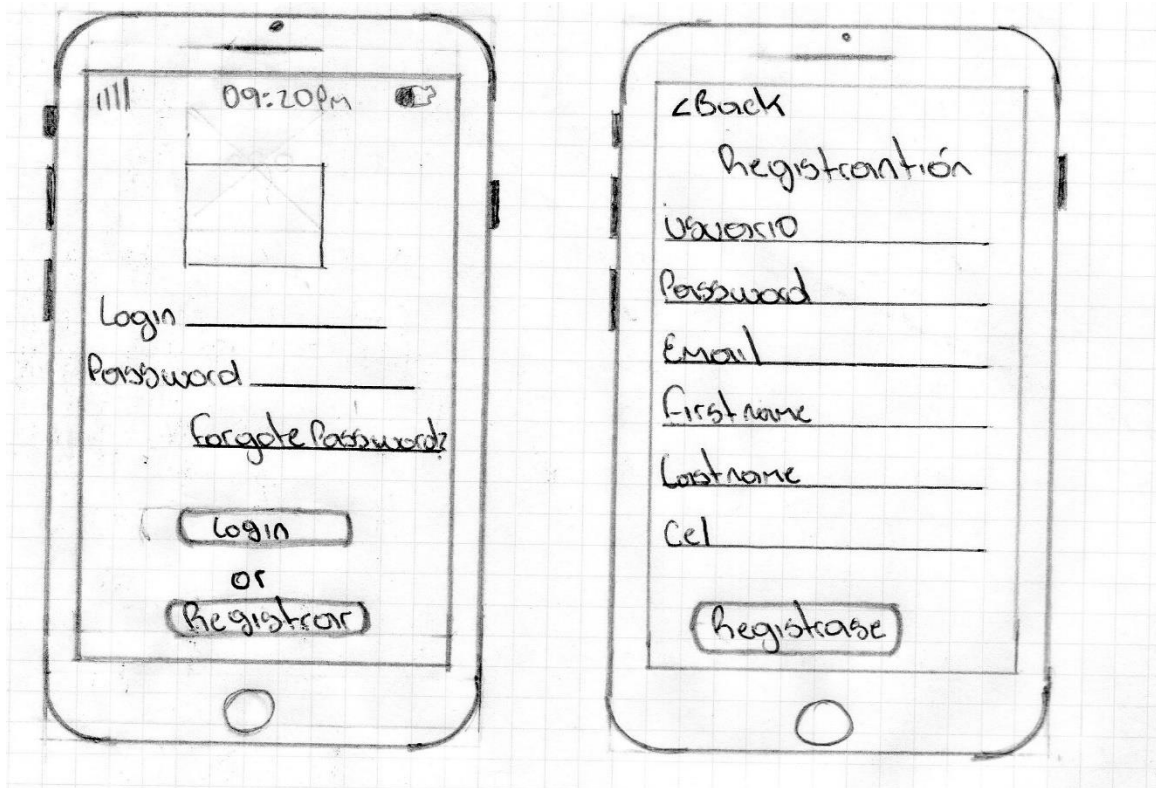 09:20Pm
Login
Password
Forgote Password?
Login
or
Registrar
<Back
Registrantión
Usuario
Password
Email
First name
Lastname
Cel
Registrase